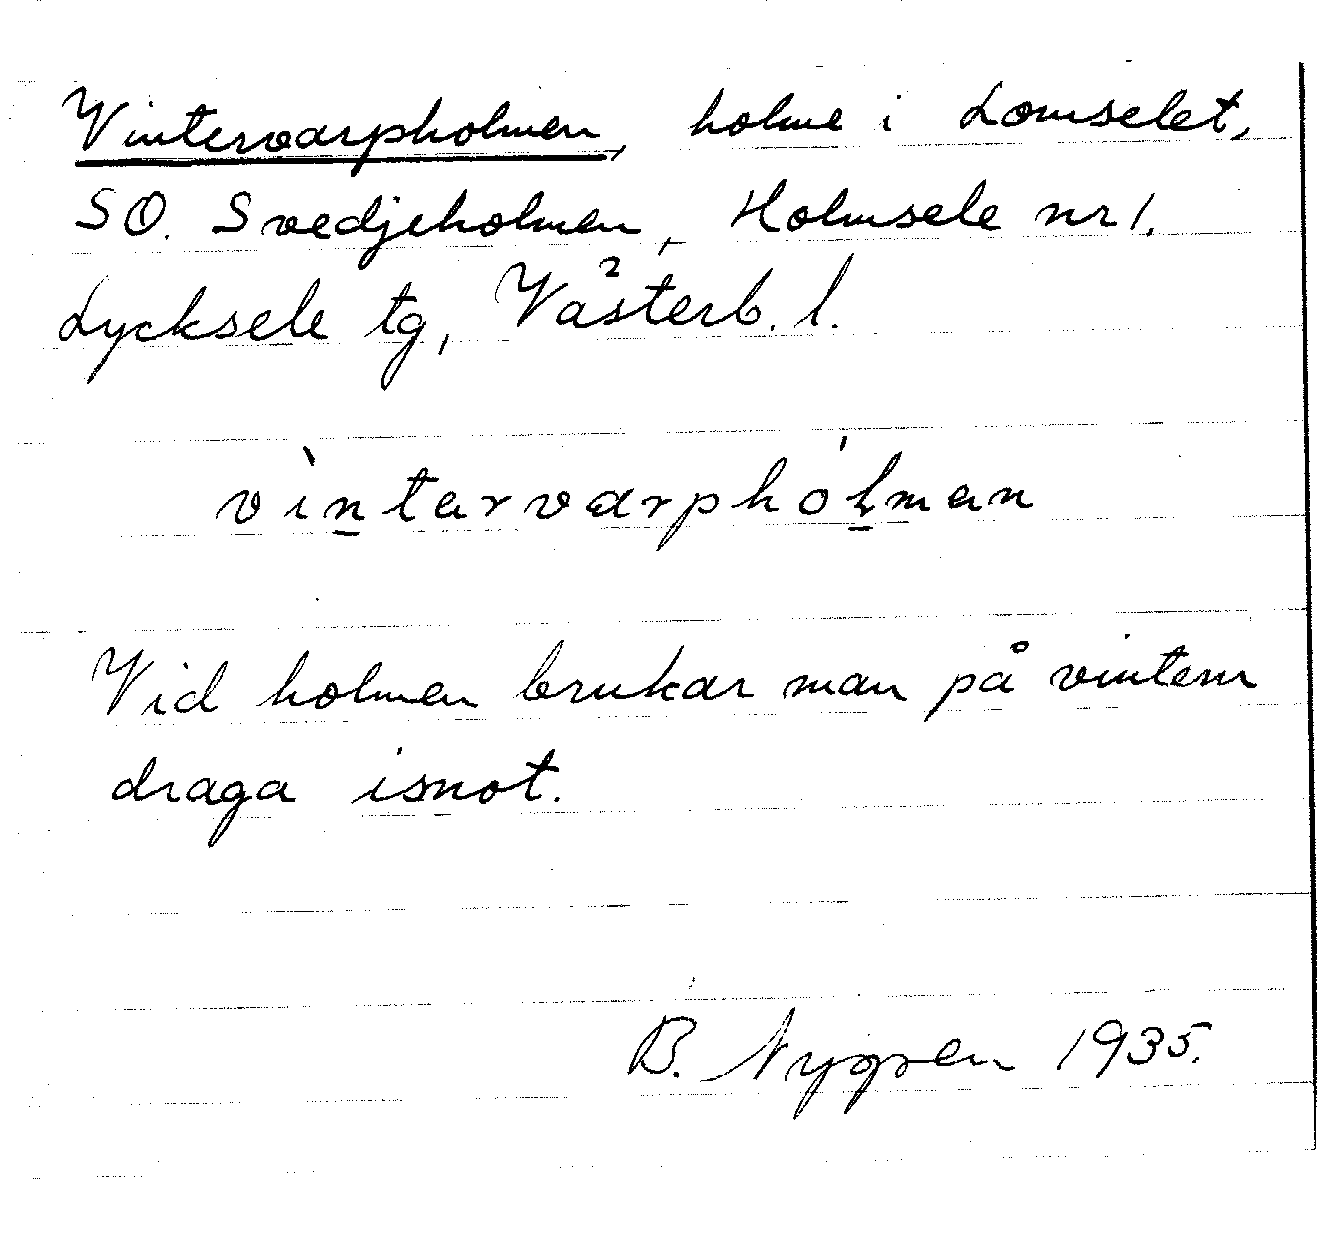 Vintervarpholmen, holme i Lomselet,
SO. Svedjeholmen, Holmsele nr 1.
Lycksele tg, Västerb. l.
vìntarvarphólman
Vid holmen brukar man på vintern
draga isnot.
B. Nygren 1935.